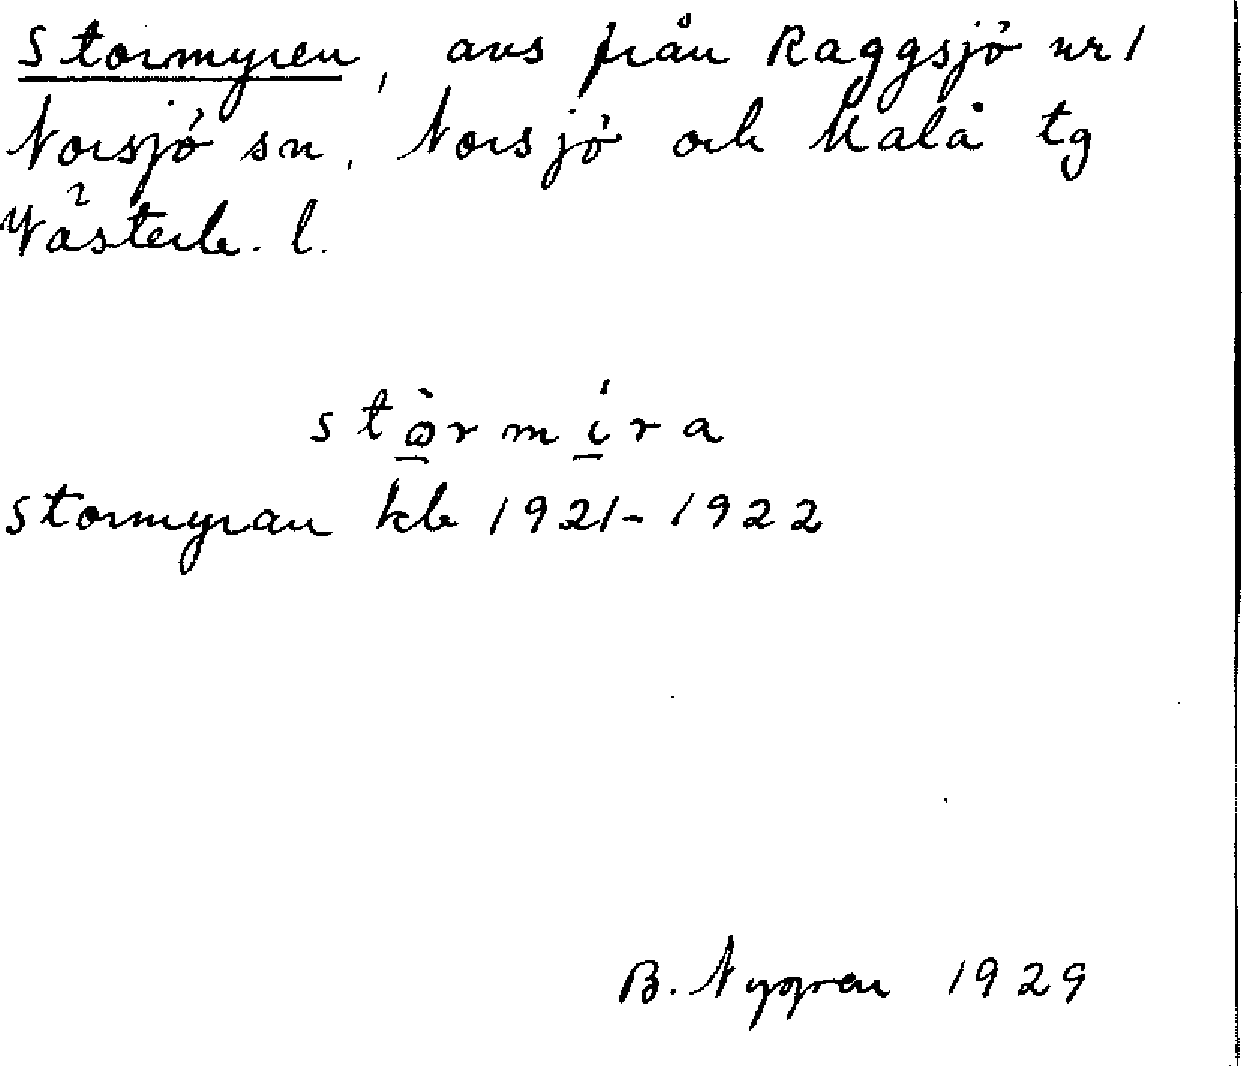 Stormyren, avs från Raggsjö nr 1
Norsjö sn, Norsjö och Malå tg
Västerb. l.
stòrmíra
Stormyran kb 1921-1922
B. Nygren 1929